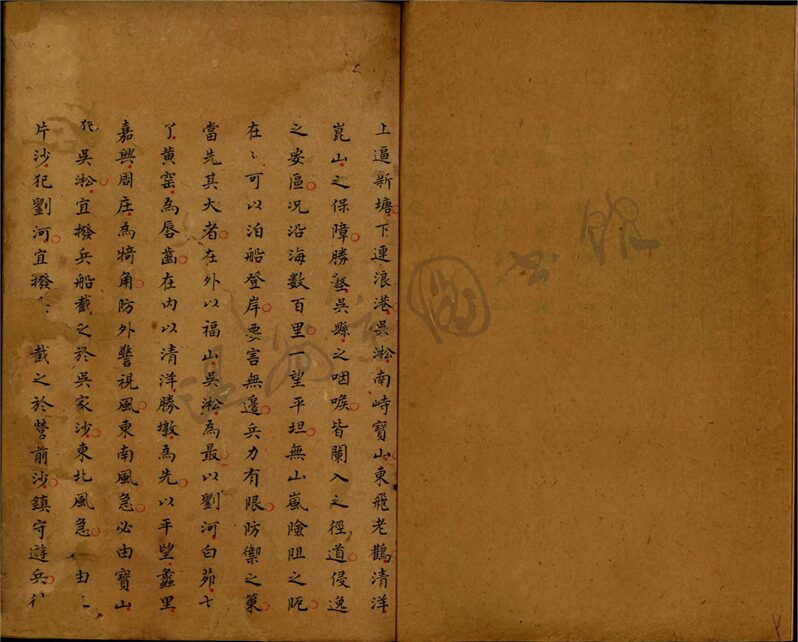 上逼新塘下連浪港吳淞南峙寶山東飛老鸛清洋
崑山之保障勝墪吳縣之咽喉皆闌入之徑道侵逸
之安區況沿海數百里一望平坦無山嵐險阻之阨
在〻可以泊船登岸要害無邊兵力有限防禦之策
當先其大者在外以福山吳淞為最以劉河白茆七
了黄窑為唇齒在内以清洋勝墩為先以平望蠡里
嘉興周庄為犄角防外警視風東南風急必由寶山
犯吳淞宜撥兵船截之於吳家沙東北風急由
片沙犯劉河宜撥截之於營前沙鎮守遊兵